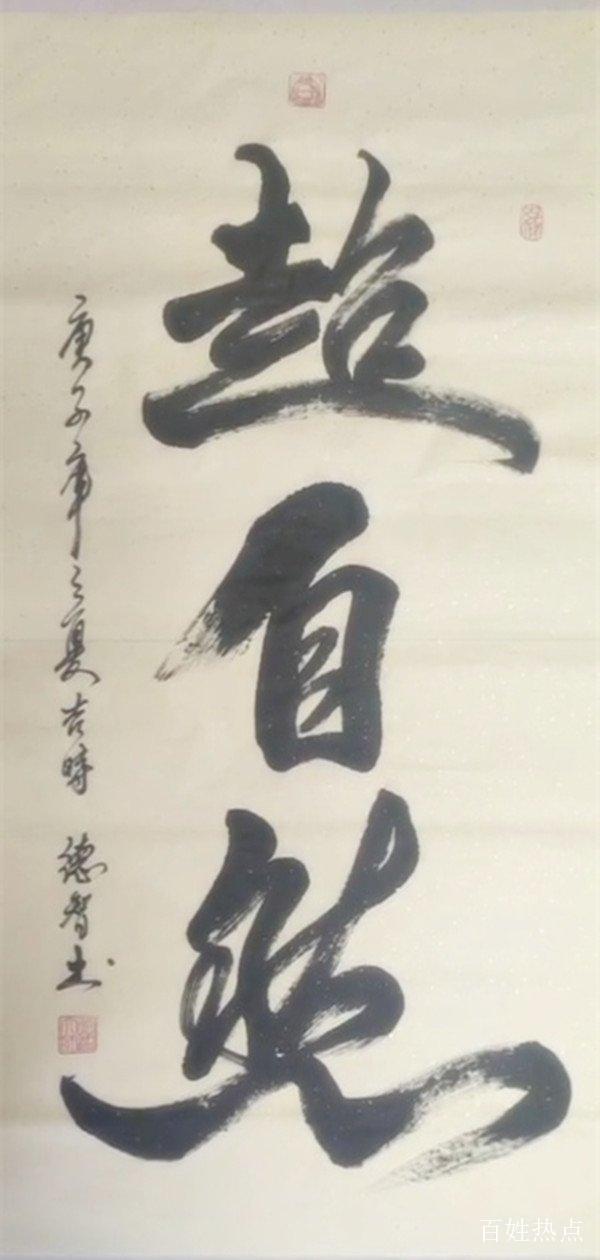 超自然
庚子年之夏吉時 德智书
百姓热点